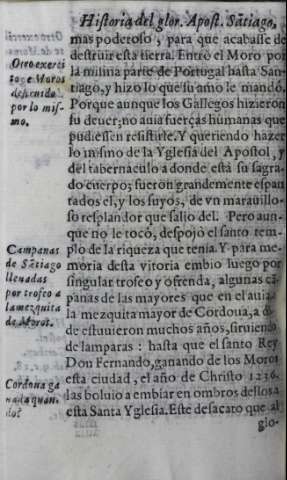 Historia del glor. Apost. Sãtiago,
mas poderoso, para que acabasse de
destruir esta tierra. Entrò el Moro por
la misma parte de Portugal hasta San-
tiago, y hizo lo que su amo le mandó.
Porque aunque los Gallegos hizieron
su deuer; no auia fuerças humanas que
pudiessen resistirle. Y queriendo hazer
lo mismo de la Yglesia del Apostol, y
del tabernaculo a donde està su sagra-
do cuerpo; fueron grandemente espan
tados el, y los suyos, de vn marauillo-
so resplandor que saliò del. Pero aun-
que no le tocò, despojò el santo tem-
plo de la riqueza que tenia. Y para me-
moria desta vitoria embio luego por
singular trofeo y ofrenda, algunas cã
panas de las mayores que en el auia, a
la mezquita mayor de Cordoua, a dõ
de estuuieron muchos años, siruiendo
de lamparas: hasta que el santo Rey
Don Fernando, ganando de los Moros
esta ciudad, el año de Christo 1236.
las boluio a embiar en ombros dellos a
esta Santa Yglesia. Este desacato que al
glo-
Otro exerci
to de Moros
destruido
por lo mis-
mo.
Campanas
de Sãtiago
lleuadas
por trofeo a
la mezquita
de Moros.
Cordoua ga
nada quan-
do?